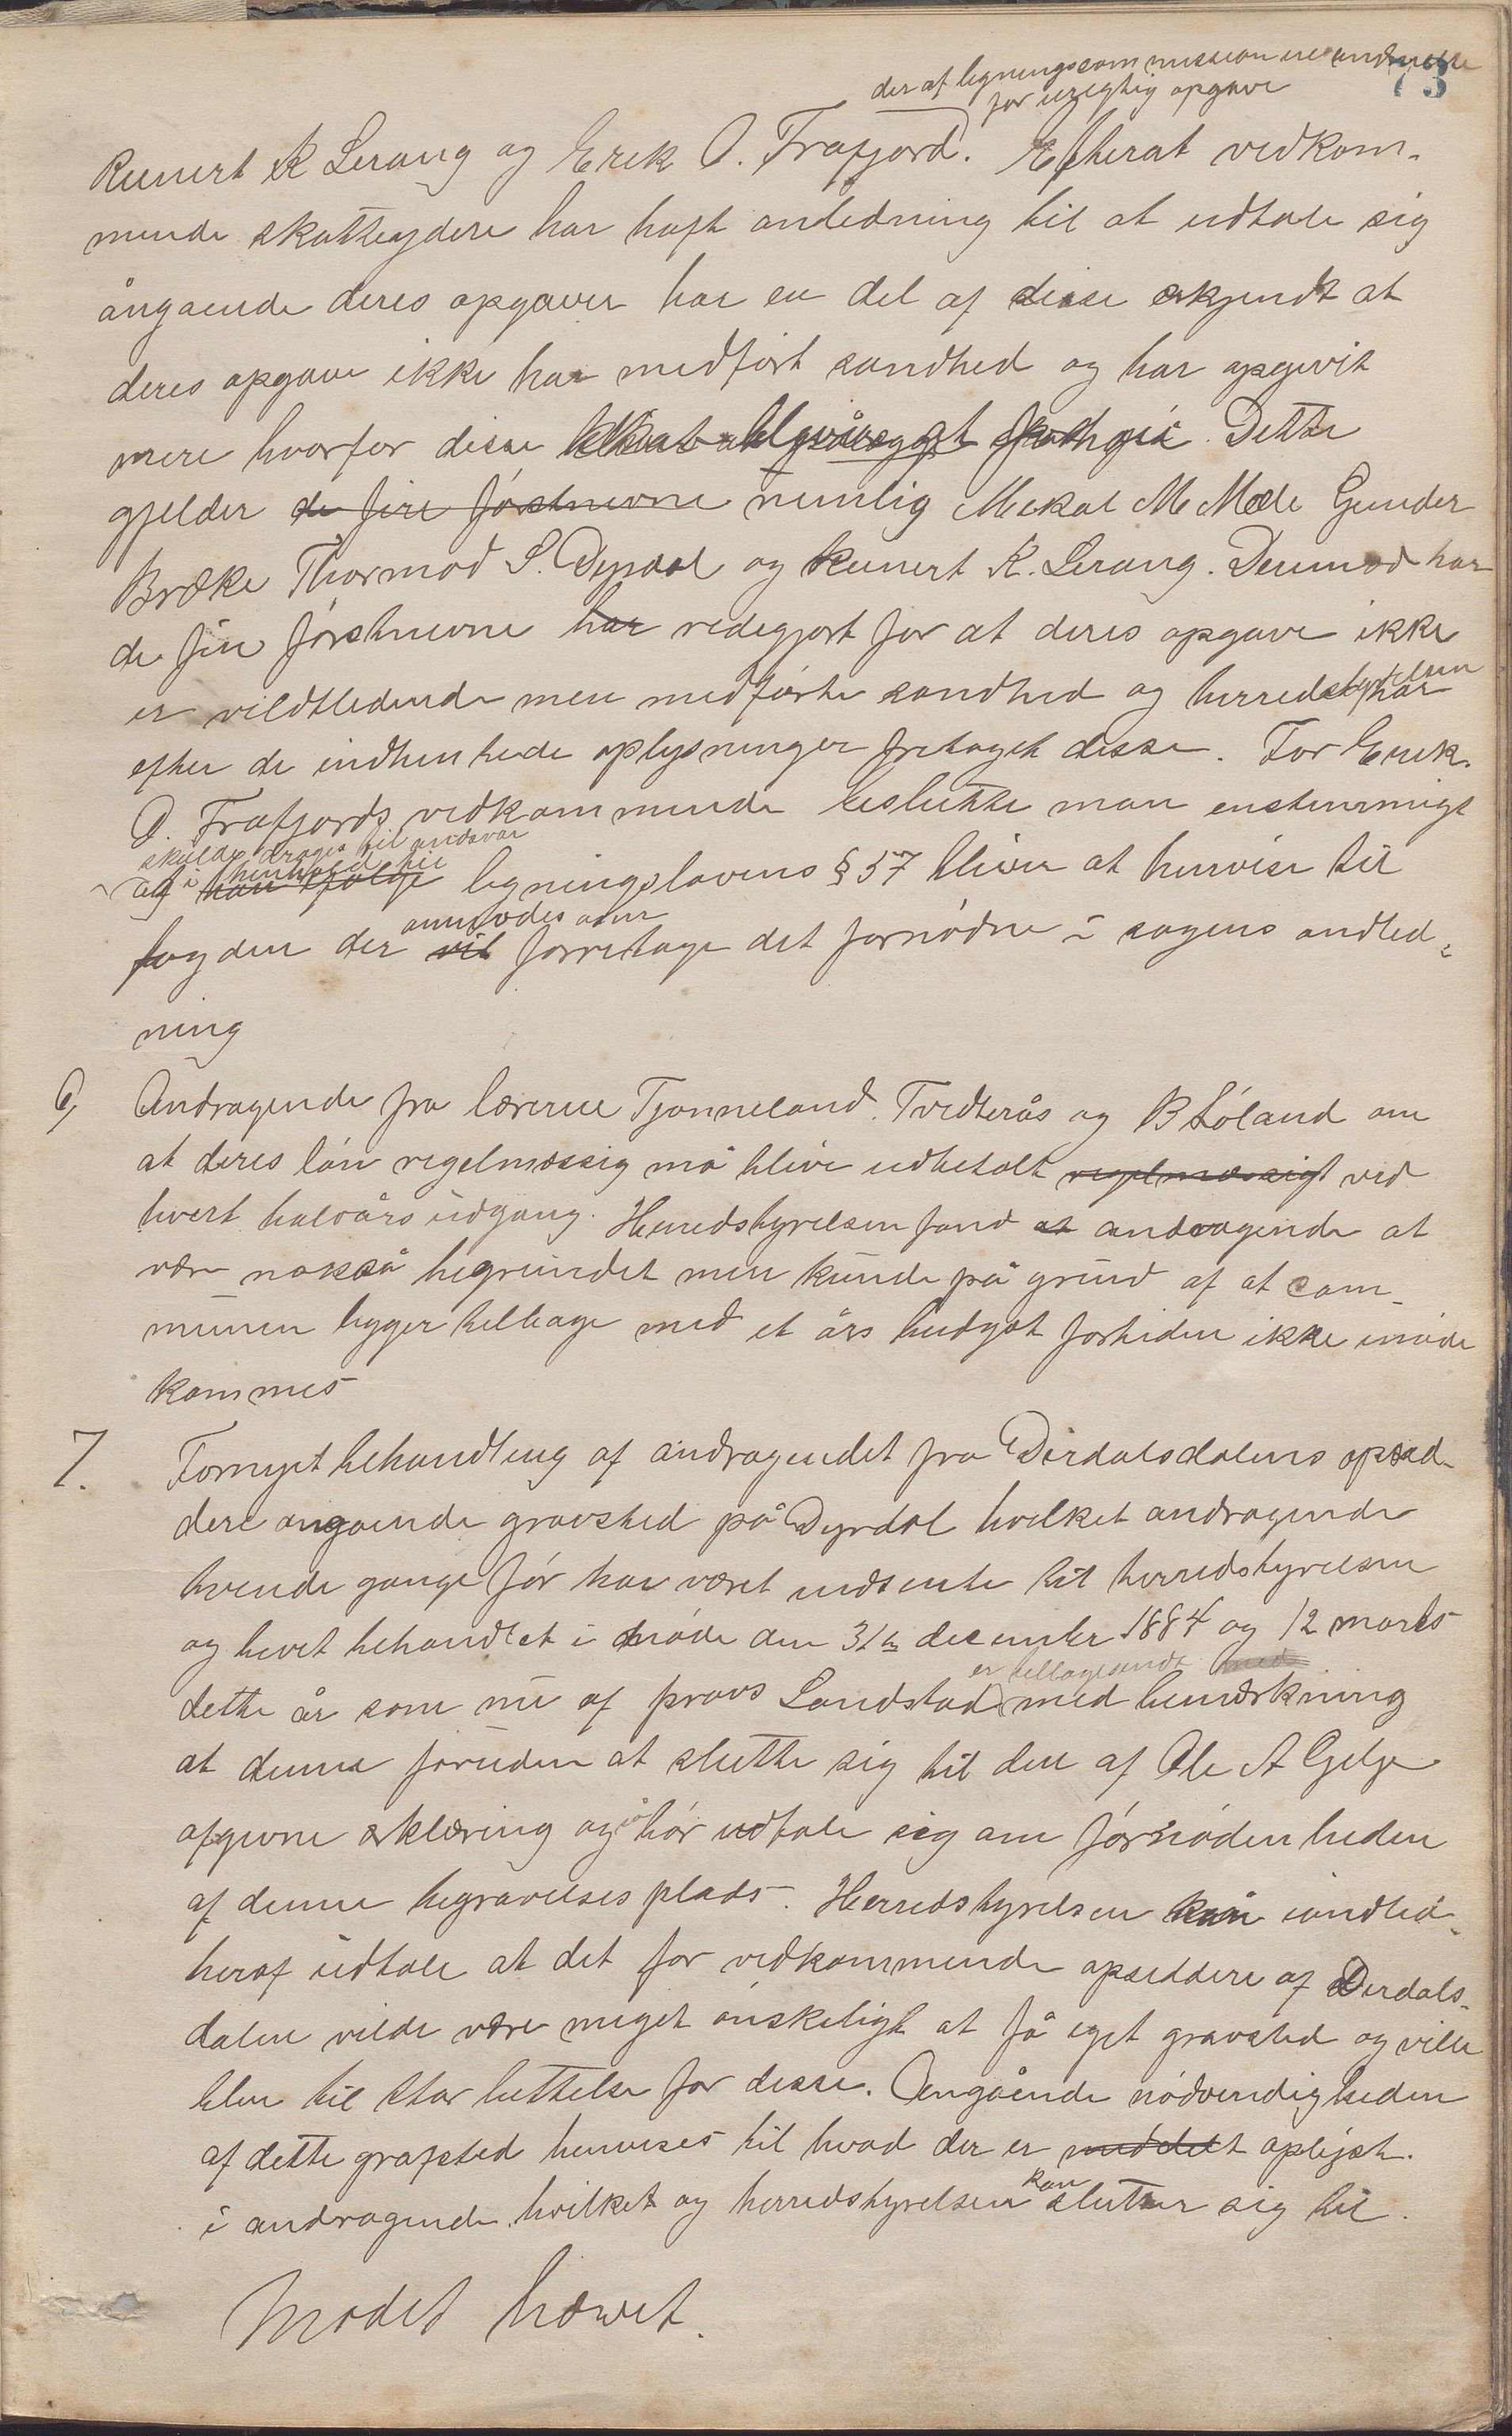 73
der af ligningscommissionen andrettede
for urigtig opgave
Reinert K Lerang og Erik O. Frafjord. Efterat vedkom-
mende skatteydere har haft anledning til at udtale sig
ångaende deres opgaver har en del af disse erkjendt at
deres opgave ikke har medført sandhed og har opgivet
mere hvorfor disse Dette
gjelder de fire førstnevne nemlig Mikal M Mæle Gunder
Bræke Thormod S. Dyrdal og Reinert K. Lerang. Derimod har
de fire førstnevne har redegjort for at deres opgave ikke
er vildtledende men medførte sandhed og herredstyrelsen har
efter de indhentede oplysninger fretaget disse. For Erik
O. Frafjords vedkommende beslutte man enstemmigt
skulde drages til andsvar
at i henhold til ligningslovens § 57 bliver at henvise til
anmodes om
fogden der vil forretage det fornødne i sagens andled-
ning
6, Andragende fra lærerne Tjønneland. Tvedterås og B Løland om
at deres løn regelmæssig må blive udbetalt regelmæssigt ved
hvert halvårs udgang. Herredstyrelsen fand at andragende at
være nokså begrundet men kunde på grund af at com-
munen ligger tilbage med et års budget fortiden ikke imøde
kommes
7. Fornyet behandling af andragendet fra Dirdalsdalens opsid-
dere angaende gravsted på Dyrdal hvilket andragende
tvende gange før har været indsente til herredstyrelsen
og hvert behandlet i møde den 31te december 1884 og 12 marts
er tilbagesendt med
dette år som nu af provs Landstad med bemærkning
at denne foruden at slutte sig til den af Ole A Gilje
afgivne erklæring også bør udtale sig om fornødenheden
af denne begravelses plads. Herredstyrelsen kan iandled-
heraf udtale at det for vedkommende opsiddere af Dirdals-
dalen vilde være meget ønskeligt at få eget gravsted og ville
blive til stor lettelse for disse. Angående nødvendigheden
af dette grafsted henvises til hvad der er meddelt oplyst.
i andragende hvilket og herredstyrelsen kan slutter sig til.
Mødet hævet.